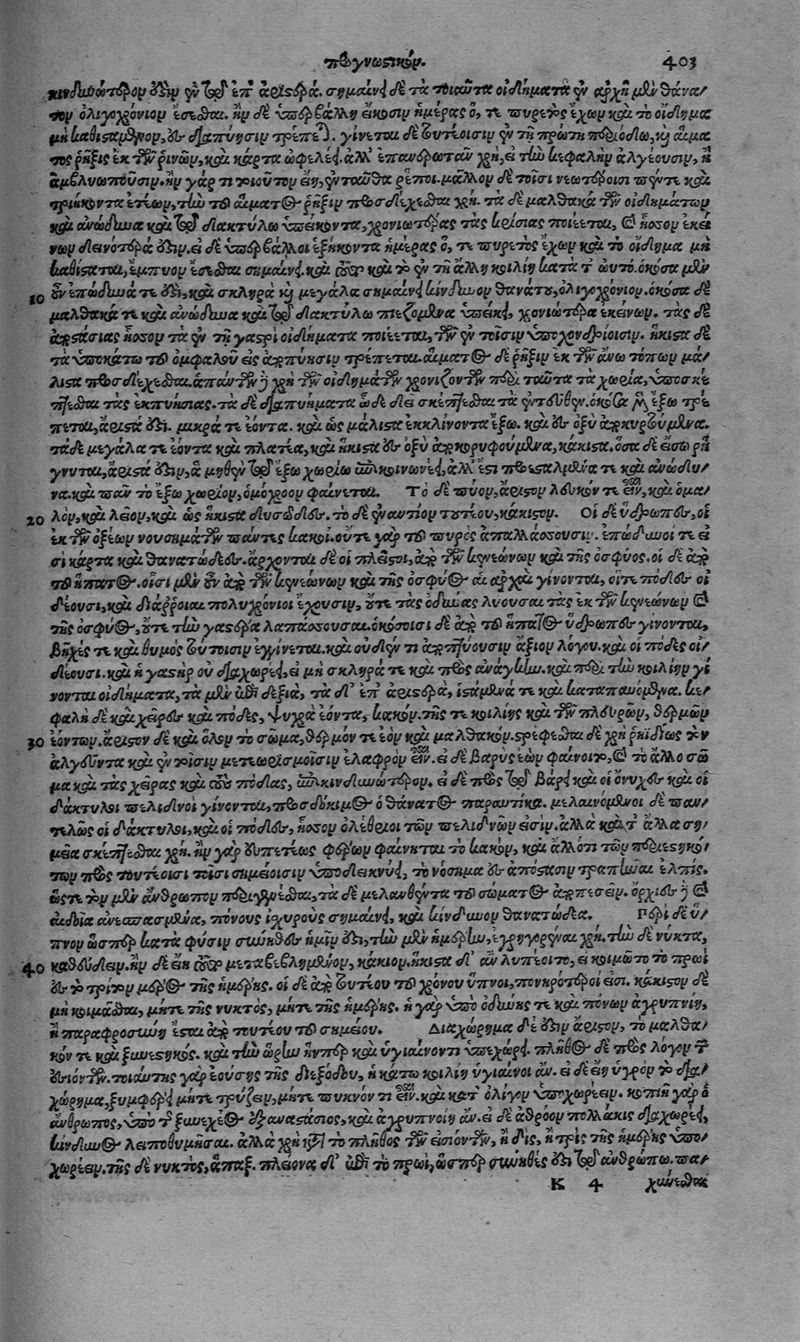 προγνωστικόν. 403
κινδυνότερον δ' ἂν ἐν τῷ ἐπ' ἀριστερά. σημαίνει δὲ τὰ τοιαῦτα οἰδήματα ἐν ἀρχῇ μὲν θάνα/
τον ὀλιγοχρόνιον ἔσεσθαι. ἢν δὲ ὑπερβάλλῃ εἴκοσιν ἡμέρας ὅ, τε πυρετὸς ἔχων καὶ τὸ οἴδημα
μὴ καθιστάμενον, ἐς διαπύησιν τρέπεται. γίνεται δὲ τουτέοισιν ἐν τῇ πρώτῃ περιόδῳ, καὶ αἵμα
τος ῥῆξις ἐκ τῶν ῥινῶν, καὶ κάρτα ὠφελέει. ἀλλ' ἐπανερωτᾶν χρὴ, εἰ τὴν κεφαλὴν ἀλγέουσιν, ἢ
ἀμβλυωποῦσιν. ἢν γάρ τι τοιοῦτον εἴη, ἐνταῦθα ῥέποι. μᾶλλον δὲ τοῖσι νεωτέροισι πέντε καὶ
τριήκοντα ἐτέων, τὴν τοῦ αἵματος ῥῆξιν προσδέχεσθαι χρή. τὰ δὲ μαλθακὰ τῶν οἰδημάτων
καὶ ἀνώδυνα καὶ τῷ δακτύλῳ ὑπείκοντα, χρονιωτέρας τὰς κρίσιας ποιέεται, καὶ ἧσσον ἐκεί
νων δεινότερά ἐστιν. εἰ δὲ ὑπερβάλλοι ἑξήκοντα ἡμέρας ὅ, τε πυρετὸς ἔχων καὶ τὸ οἴδημα μὴ
καθίσταται, ἔμπυον ἔσεσθαι σημαίνει. καὶ τοῦτο καὶ τὸ ἐν τῇ ἄλλῃ κοιλίῃ κατὰ τ' ωὐτό. ὁκόσα μὲν
10 οὖν ἐπώδυνά τέ ἐστι, καὶ σκληρὰ καὶ μεγάλα σημαίνει κίνδυνον θανάτου, ὀλιγοχρόνιον. ὁκόσα δὲ
μαλθακά τε καὶ ἀνώδυνα καὶ τῷ δακτύλῳ πιεζόμενα ὑπείκει, χρονιώτερα ἐκείνων. τὰς δὲ
ἀποστάσιας ἧσσον τὰ ἐν τῇ γαστρὶ οἰδήματα ποιέεται, τῶν ἐν τοῖσιν ὑποχονδρίοισιν. ἥκιστα δὲ
τὰ ὑποκάτω τοῦ ὀμφαλοῦ εἰς ἀποπύησιν τρέπεται. αἵματος δὲ ῥῆξιν ἐκ τῶν ἄνω τόπων μά/
λιστα προσδέχεσθαι. ἁπάντων δὲ χρὴ τῶν οἰδημάτων χρονιζόντων περὶ ταῦτα τὰ χωρία, ὑποσκέ
πτεσθαι τὰς ἐκπυήσιας. τὰ δὲ διαπυήματα ὧδε δεῖ σκέπτεσθαι τὰ ἐντεῦθεν. ὁκόσα μὲν ἔξω τρέ
πεται, ἄριστά ἐστι. μικρά τε ἐόντα. καὶ ὡς μάλιστα ἐκκλίνοντα ἔξω. καὶ ἐς ὀξὺ ἀποκυρτεύμενα.
τάδε μεγάλα τε ἐόντα καὶ πλατέα, καὶ ἥκιστα ἐς ὀξὺ ἀποκορυφούμενα, κάκιστα. ὅσα δὲ εἴσω ῥή
γνυται, ἄριστά ἐστιν, ἃ μηθὲν τῷ ἔξω χωρίῳ ἐπικοινωνέει, ἀλλ' ἔστι προεσταλμένα τε καὶ ἀνώδυ/
να. καὶ πᾶν τὸ ἔξω χωρίον, ὁμόχροον φαίνεται. Τὸ δὲ πύον, ἄριστον λευκόν τε εἶναι, καὶ ὁμα/
20 λὸν, καὶ λεῖον, καὶ ὡς ἥκιστα δυσῶδες. τὸ δὲ ἐναντίον τουτέου, κάκιστον. Οἱ δὲ ὕδρωπες, οἱ
ἐκ τῶν ὀξέων νουσημάτων πάντες κακοί. οὔτε γὰρ τοῦ πυρὸς ἀπαλλάσσουσιν. ἐπώδυνοί τέ εἰ
σὶ κάρτα καὶ θανατώδεες. ἄρχονται δὲ οἱ πλεῖστοι, ἀπὸ τῶν κενεώνων καὶ τῆς ὀσφύος. οἱ δὲ ἀπὸ
τοῦ ἥπατος. οἷσι μὲν οὖν ἀπὸ τῶν κενεώνων καὶ τῆς ὀσφύος αἱ ἀρχαὶ γίνονται, οἵ τε πόδες οἰ
δέουσι, καὶ διάρροιαι πολυχρόνιοι ἔχουσιν, οὔτε τὰς ὀδύνας λύουσαι τὰς ἐκ τῶν κενεώνων καὶ
τῆς ὀσφύος, οὔτε τὴν γαστέρα λαπάσσουσαι. ὁκόσοισι δὲ ἀπὸ τοῦ ἥπατος ὕδρωπες γίνονται,
βῆχές τε καὶ θυμὸς αὐτοῖσιν ἐγγίνεται. καὶ οὐδέν τι ἀποπτύουσιν ἄξιον λόγου. καὶ οἱ πόδες οἰ/
δέουσι. καὶ ἡ γαστὴρ οὐ διαχωρέει, εἰ μὴ σκληρά τε καὶ πρὸς ἀνάγκην. καὶ περὶ τὴν κοιλίην γί
νονται οἰδήματα, τὰ μὲν ἐπὶ δεξιὰ, τὰ δ' ἐπ' ἀριστερὰ, ἱστάμενά τε καὶ καταπαυόμενα. κε/
φαλὴ δὲ καὶ χεῖρες καὶ πόδες, ψυχρὰ ἐόντα, κακόν. τῆς τε κοιλίης καὶ τῶν πλευρῶν, θερμῶν
30 ἐόντων. ἄριστον δὲ καὶ ὅλον τὸ σῶμα, θερμόν τε ἐὸν καὶ μαλθακόν. στρέφεσθαι δὲ χρὴ ῥηϊδίως τὸν
ἀλγεῦντα καὶ ἐν τοῖσι μετεωρισμοῖσιν ἐλαφρὸν εἶναι. εἰ δὲ βαρὺς ἐὼν φαίνοιτο, καὶ τὸ ἄλλο σῶ
μα καὶ τὰς χεῖρας καὶ τοὺς πόδας, ἐπικινδυνότερον. εἰ δὲ πρὸς τῷ βάρει καὶ οἱ ὄνυχες καὶ οἱ
δάκτυλοι πελιδνοὶ γίνονται, προσδόκιμος ὁ θάνατος παραυτίκα. μελαινόμενοι δὲ παν/
τελῶς οἱ δάκτυλοι, καὶ οἱ πόδες, ἧσσον ὀλέθριοι τῶν πελιδνῶν εἰσιν. ἀλλὰ καὶ τ' ἄλλα ση/
μεῖα σκέπτεσθαι χρή. ἢν γὰρ εὐπετέως φέρων φαίνηται τὸ κακὸν, καὶ ἄλλο τι τῶν περιεστηκό/
των πρὸς τουτέοισι τοῖσι σημείοισιν ὑποδεικνύῃ, τὸ νόσημα ἐς ἀπόστασιν τραπῆναι ἐλπίς.
ὥστε τὸν μὲν ἄνθρωπον περιγενέσθαι, τὰ δὲ μελανθέντα τοῦ σώματος ἀποπεσεῖν. ὄρχιες δὲ καὶ
αἰδοῖα ἀνεσπασμένα, πόνους ἰσχυροὺς σημαίνει, καὶ κίνδυνον θανατώδεα. Περὶ δὲ ὕ/
πνου ὥσπερ κατὰ φύσιν σύνηθες ἡμῖν ἐστι, τὴν μὲν ἡμέρην, ἐγρηγορέναι χρή. τὴν δὲ νύκτα,
40 καθεύδειν. ἢν δὲ εἴη τοῦτο μεταβεβλημένον, κάκιον. ἥκιστα δ' ἂν λυπέοιτο, εἰ κοιμῷτο τὸ πρωῒ
ἐς τὸ τρίτον μέρος τῆς ἡμέρης. οἱ δὲ ἀπὸ τουτέου τοῦ χρόνου ὕπνοι, πονηρότεροί εἰσι. κάκιστον δὲ
μὴ κοιμᾶσθαι, μήτε τῆς νυκτὸς, μήτε τῆς ἡμέρης. ἢ γὰρ ὑπὸ ὀδύνης τε καὶ πόνων ἀγρυπνίη,
ἢ παραφροσύνη ἔσται ἀπὸ τουτέου τοῦ σημείου. Διαχώρημα δέ ἐστιν ἄριστον, τὸ μαλθα/
κόν τε καὶ ξυνεστηκός. καὶ τὴν ὥρην ἥνπερ καὶ ὑγιαίνοντι ὑπεχώρει. πλῆθος δὲ πρὸς λόγον τῶν
ἐσιόντων. τοιαύτης γὰρ ἐούσης τῆς διεξόδου, ἡ κάτω κοιλίη ὑγιαίνοι ἄν. εἰ δὲ εἴη ὑγρὸν τὸ δια/
χώρημα, ξυμφέρει μήτε τρύζειν, μήτε πυκνόν τι εἶναι. καὶ κατ' ὀλίγον ὑποχωρέειν. κοπιῇ γὰρ ὁ
ἄνθρωπος, ὑπὸ τῆς ξυνεχέος ἐξαναστάσιος, καὶ ἀγρυπνοίη ἄν. εἰ δὲ ἀθρόον πολλάκις διαχωρέει,
κίνδυνος λειποθυμῆσαι. ἀλλὰ χρὴ κατὰ τὸ πλῆθος τῶν ἐσιόντων, ἢ δὶς, ἢ τρὶς τῆς ἡμέρης ὑπο/
χωρέειν. τῆς δὲ νυκτὸς, ἅπαξ. πλείονα δ' ἐπὶ τὸ πρωῒ, ὥσπερ σύνηθές ἐστι τῷ ἀνθρώπῳ. πα/
K 4 χύνεσθαι